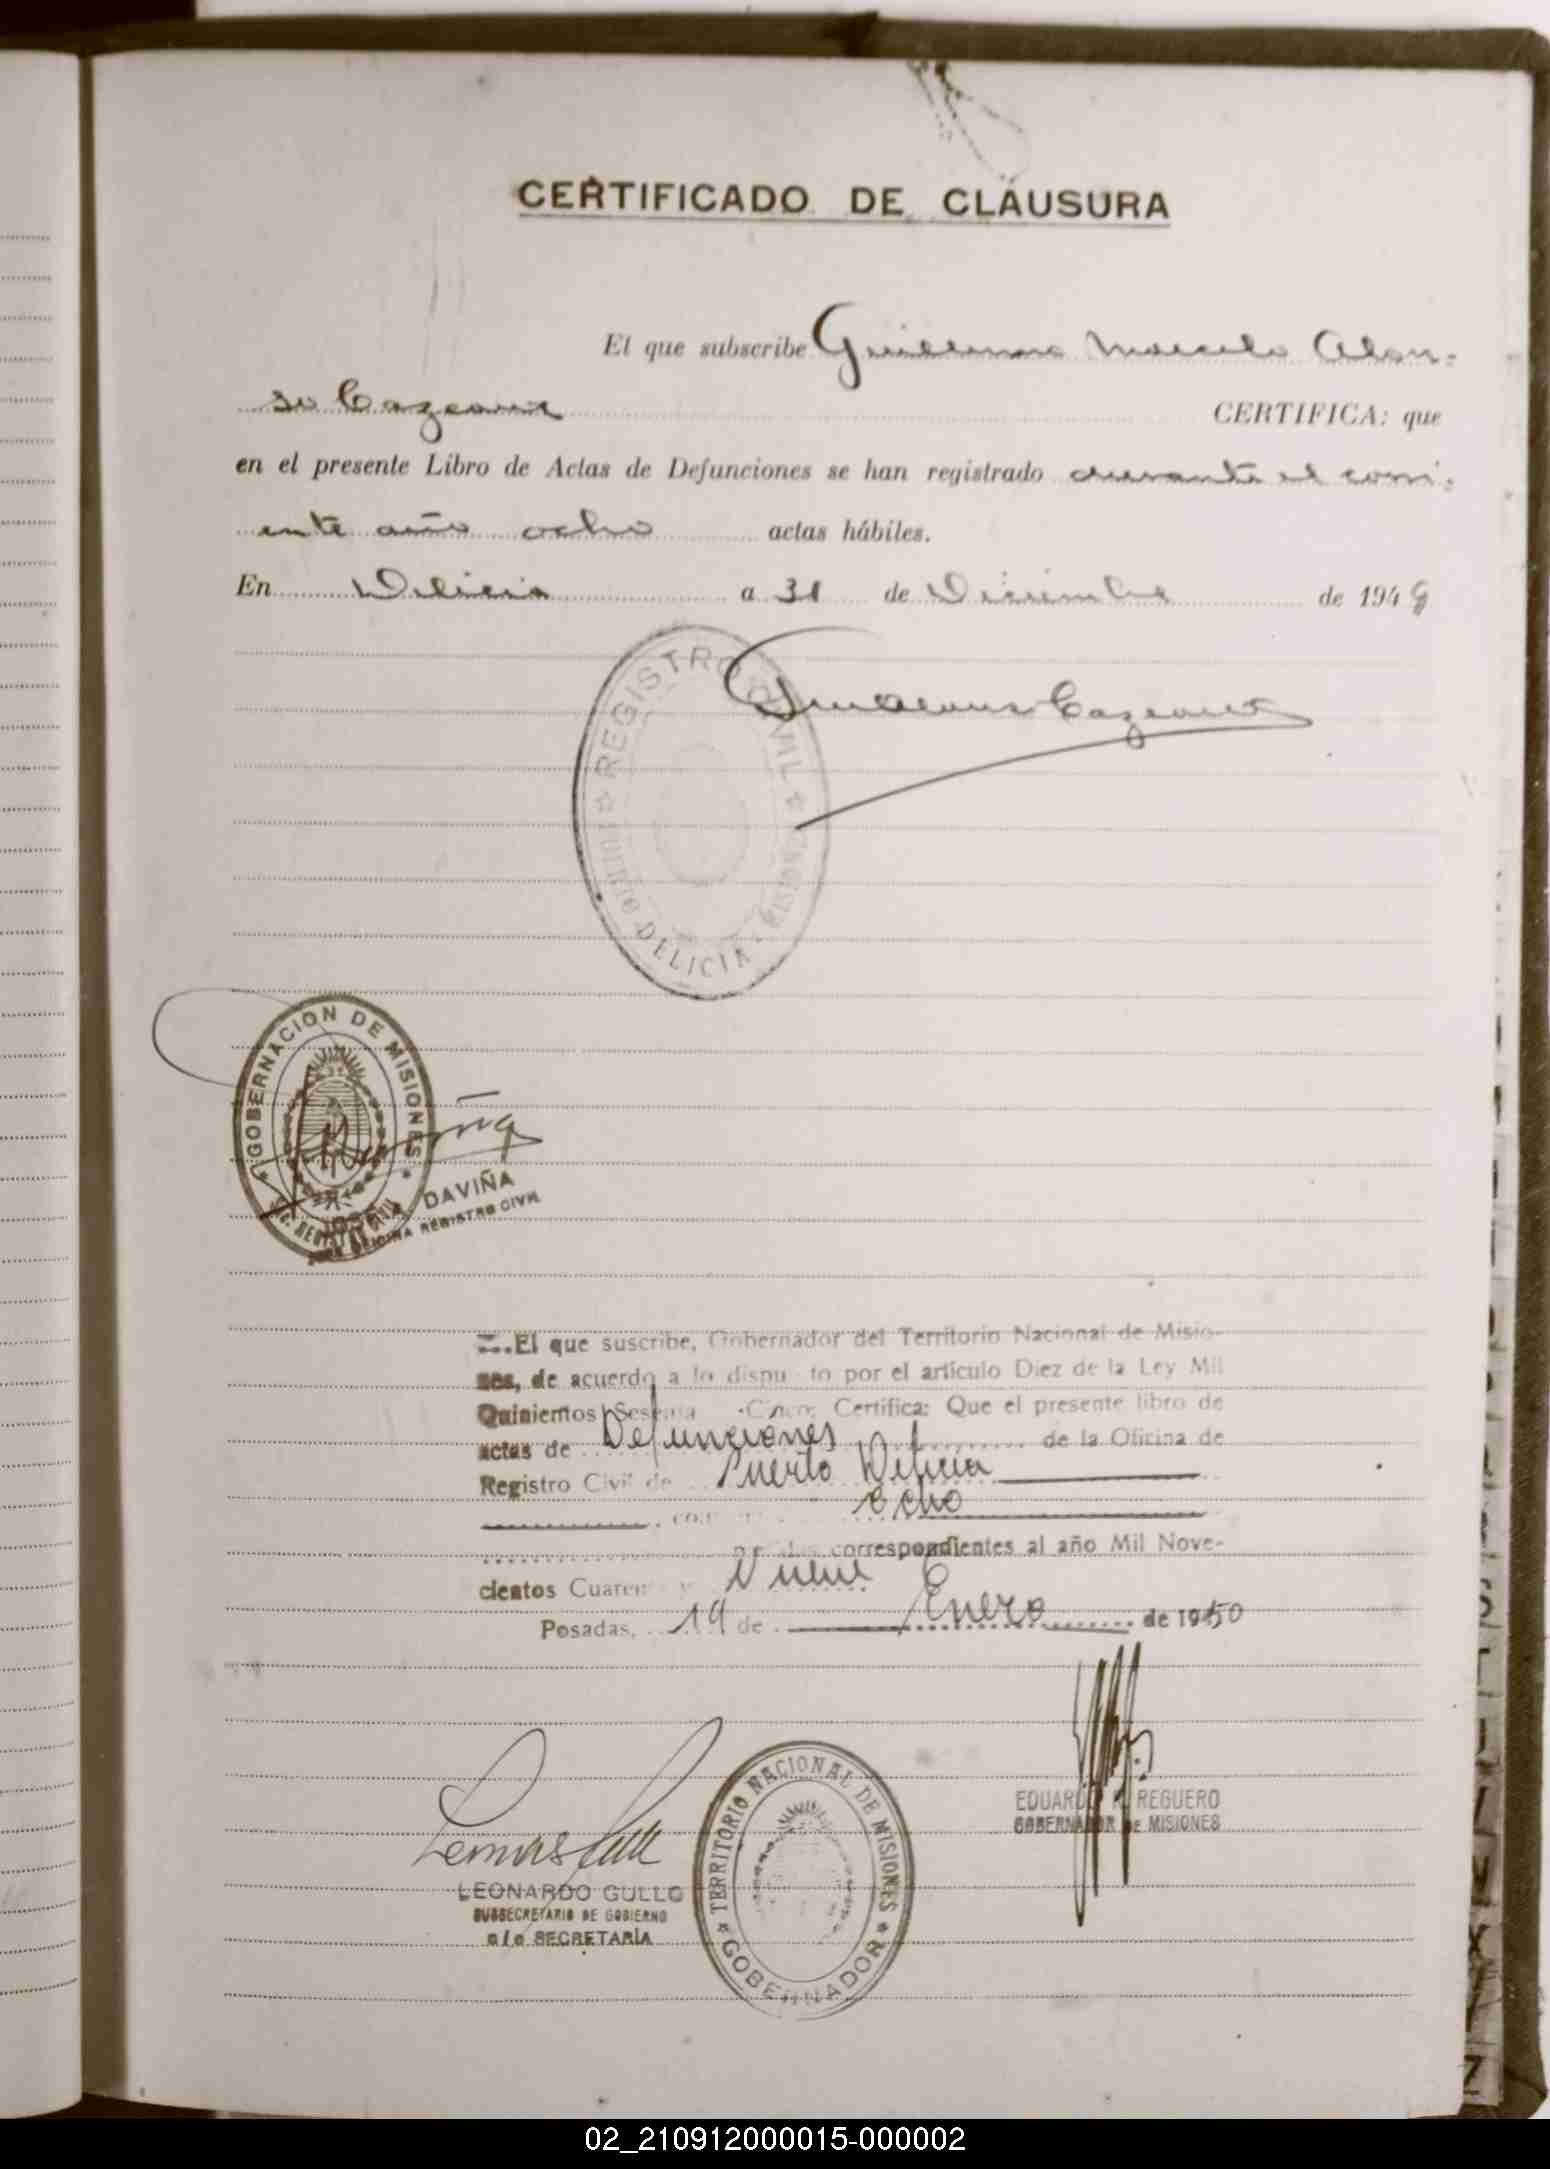 CERTIFICADO DE CLAUSURA
El que subscribe Guillermo Marcelo Alon-
so Cazeaux CERTIFICA: que
en el presente Libro de Actas de Defunciones se han registrado durante el corri-
ente año ocho actas hábiles.
En Delicia a 31 de Diciembre de 1949
REGISTRO CIVIL
PUERTO DELICIA - MISIONES
Cazeaux
GOBERNACION DE MISIONES
JOSE A. DAVIÑA
JEFE OFICINA REGISTRO CIVIL
El que suscribe, Gobernador del Territorio Nacional de Misio-
nes, de acuerdo a lo dispu to por el artículo Diez de la Ley Mil
Quinientos Sesenta Cinco; Certifica: Que el presente libro de
actas de Defunciones de la Oficina de
Registro Civil de Puerto Delicia
ocho
correspondientes al año Mil Nove-
cientos Cuarenta y Nueve
Posadas, 19 de Enero de 1950
LEONARDO GULLO
SUBSECRETARIO DE GOBIERNO
a/c SECRETARÍA
TERRITORIO NACIONAL DE MISIONES
GOBERNADOR
EDUARDO REGUERO
GOBERNADOR DE MISIONES
02_210912000015-000002